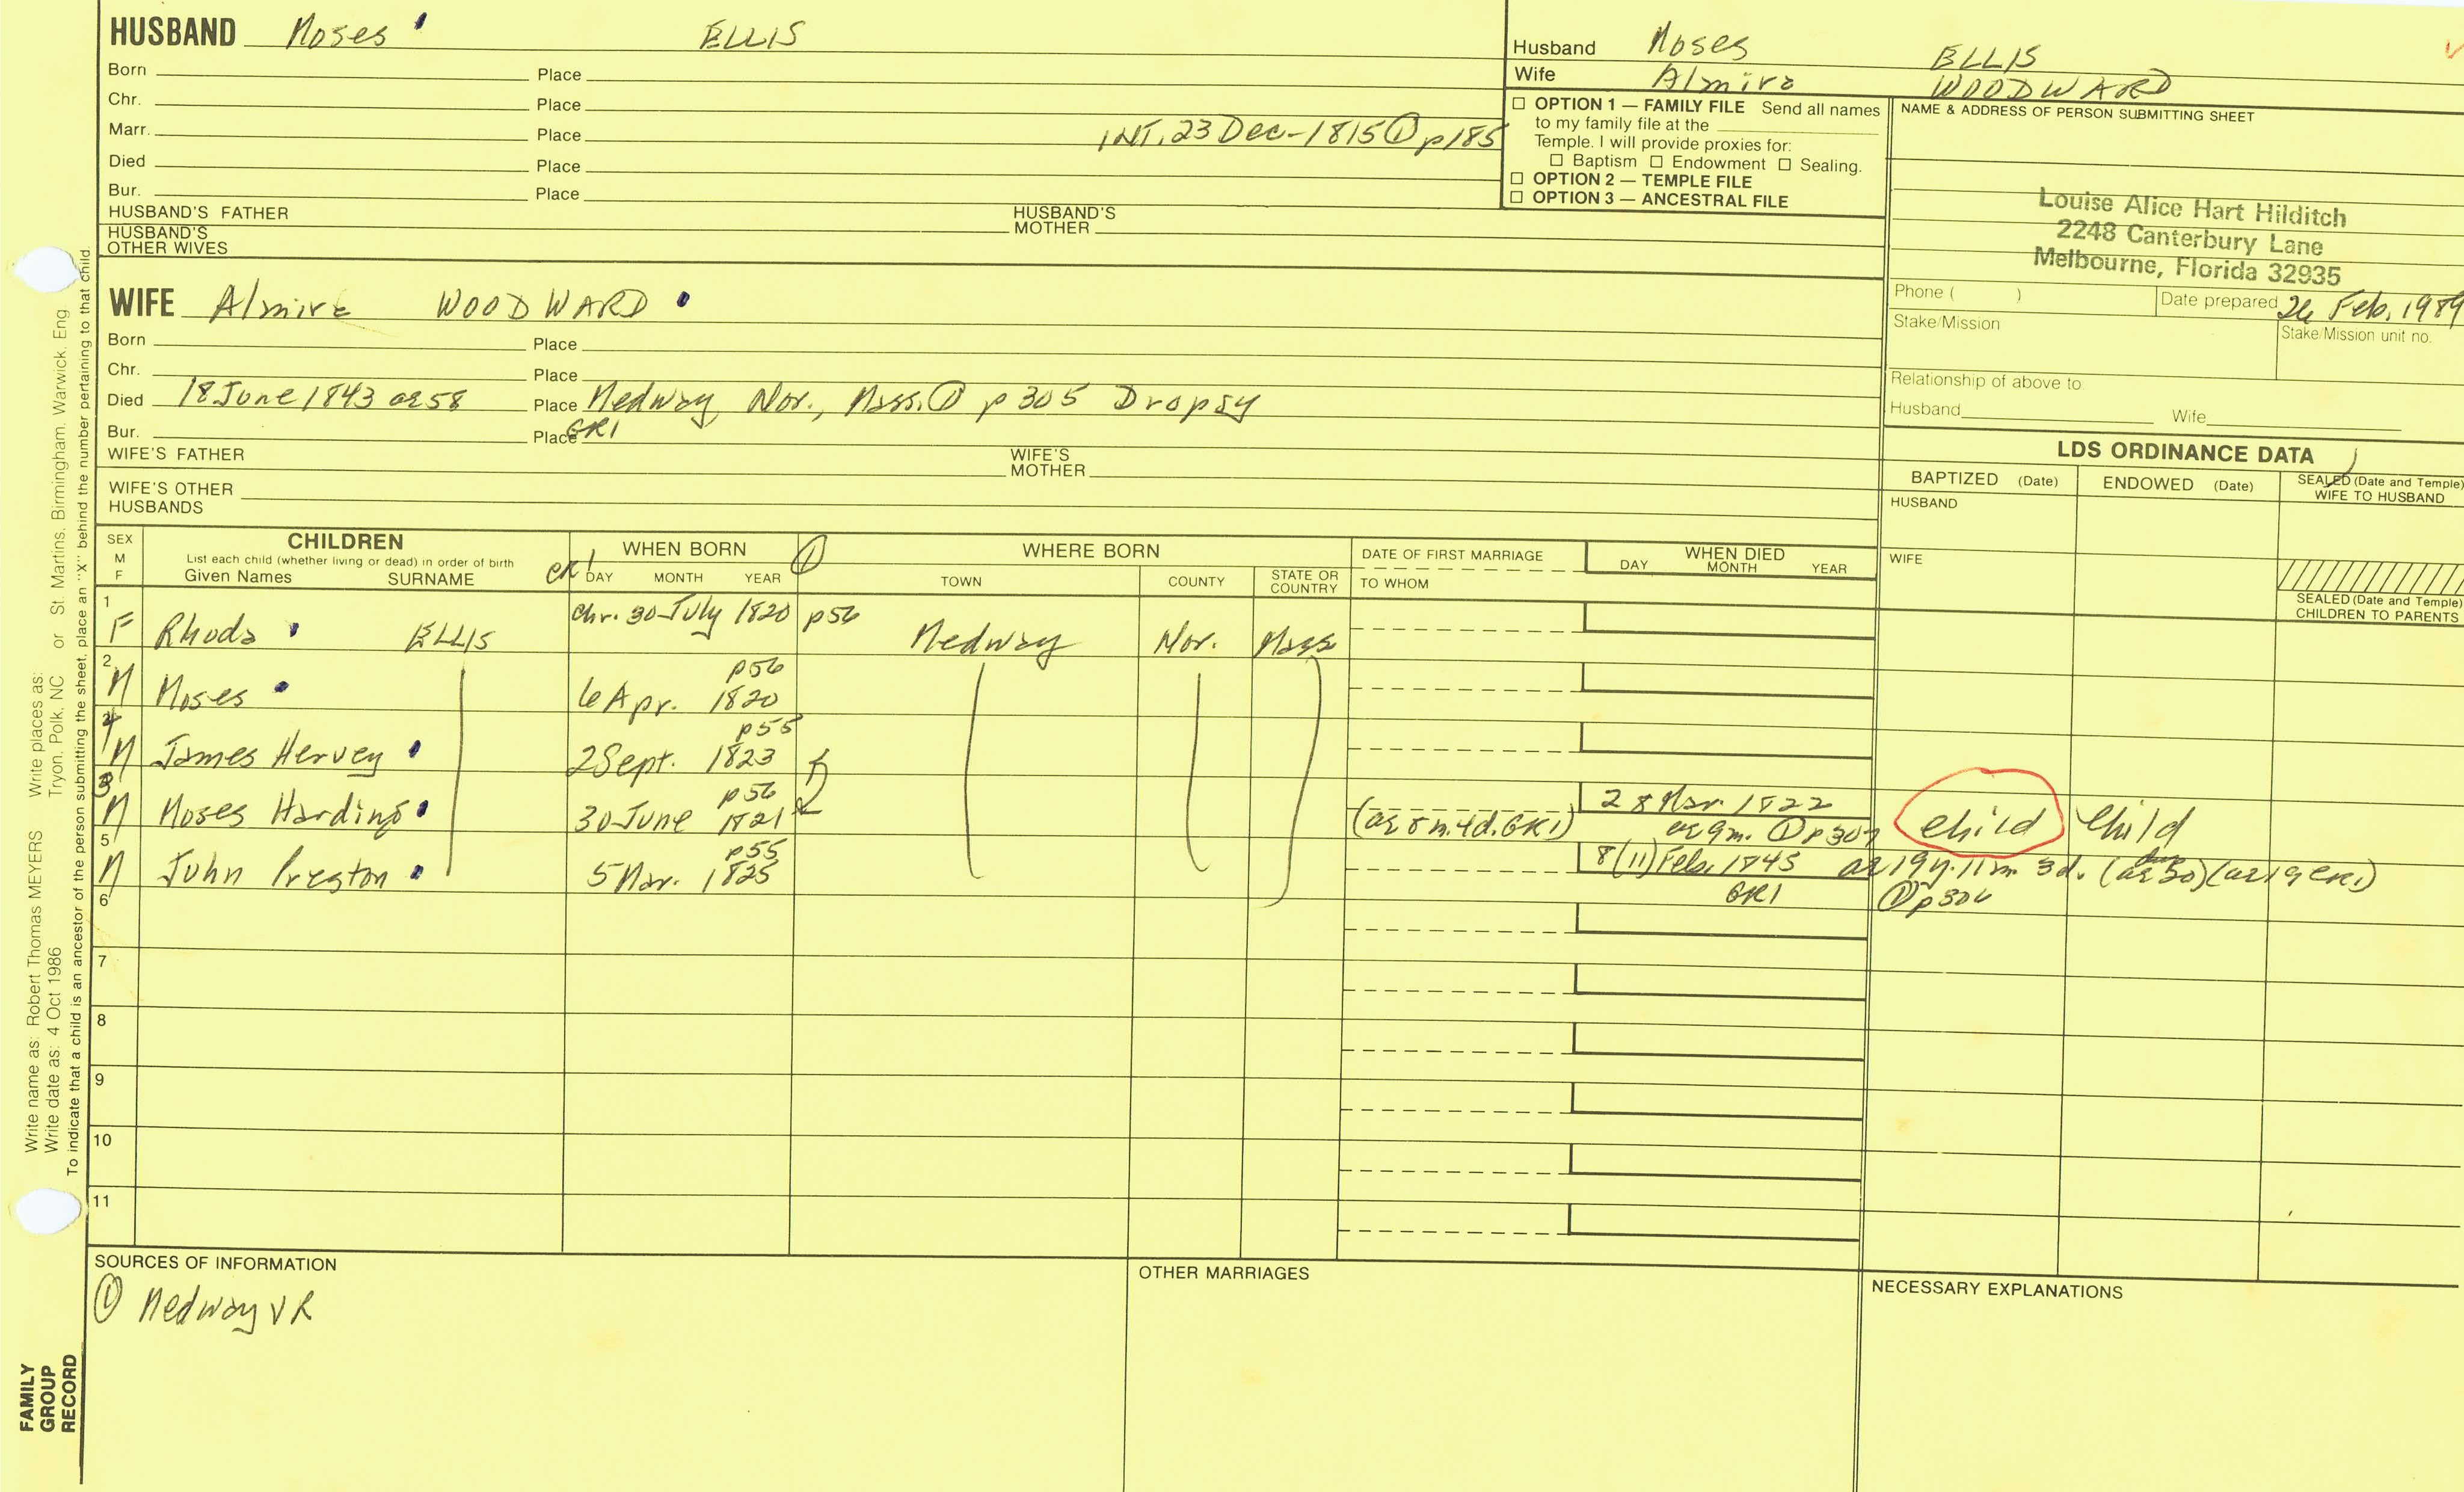 HUSBAND Moses ELLIS
Born Place
Chr. Place
Marr. Place INT. 23 Dec-1815 ① p185
Died Place
Bur. Place
HUSBAND'S FATHER HUSBAND'S MOTHER
HUSBAND'S OTHER WIVES
Husband Moses ELLIS
Wife Almira WOODWARD
☐ OPTION 1 — FAMILY FILE Send all names
to my family file at the
Temple. I will provide proxies for:
☐ Baptism ☐ Endowment ☐ Sealing.
☐ OPTION 2 — TEMPLE FILE
☐ OPTION 3 — ANCESTRAL FILE
NAME & ADDRESS OF PERSON SUBMITTING SHEET
Louise Alice Hart Hilditch
2248 Canterbury Lane
Melbourne, Florida 32935
Phone ( ) Date prepared 26 Feb, 1989
Stake/Mission Stake/Mission unit no.
Relationship of above to
Husband Wife
WIFE Almira WOODWARD
Born Place
Chr. Place
Died 18 June 1843 ae58 Place Medway, Nor., Mass. ① p305 Dropsy
Bur. Place GR1
WIFE'S FATHER WIFE'S MOTHER
WIFE'S OTHER HUSBANDS
LDS ORDINANCE DATA
BAPTIZED (Date) ENDOWED (Date) SEALED (Date and Temple) WIFE TO HUSBAND
HUSBAND
WIFE
SEALED (Date and Temple) CHILDREN TO PARENTS
SEX M F
CHILDREN
List each child (whether living or dead) in order of birth
Given Names SURNAME
WHEN BORN ①
DAY MONTH YEAR
WHERE BORN
TOWN COUNTY STATE OR COUNTRY
DATE OF FIRST MARRIAGE
TO WHOM
WHEN DIED
DAY MONTH YEAR
1 F Rhoda ELLIS chr. 30 July 1820 p56 Medway Nor. Mass
2 M Moses 6 Apr. 1820 p56
4 M James Hervey 2 Sept. 1823 p55
3 M Moses Harding 30 June 1821 p56 (ae 8m. 4d. GR1) 28 Mar. 1822 ae 9m. ① p307 child child
5 M John Preston 5 Mar. 1825 p55 8(11) Feb. 1845 ae 19y. 11m 3d. (ae 19 GR1) GR1 ① p306
6
7
8
9
10
11
SOURCES OF INFORMATION
① Medway VR
OTHER MARRIAGES
NECESSARY EXPLANATIONS
Write name as: Robert Thomas MEYERS Write places as: St. Martins, Birmingham, Warwick, Eng.
Write date as: 4 Oct 1986 Tryon, Polk, NC or
To indicate that a child is an ancestor of the person submitting the sheet, place an "X" behind the number pertaining to that child.
FAMILY
GROUP
RECORD